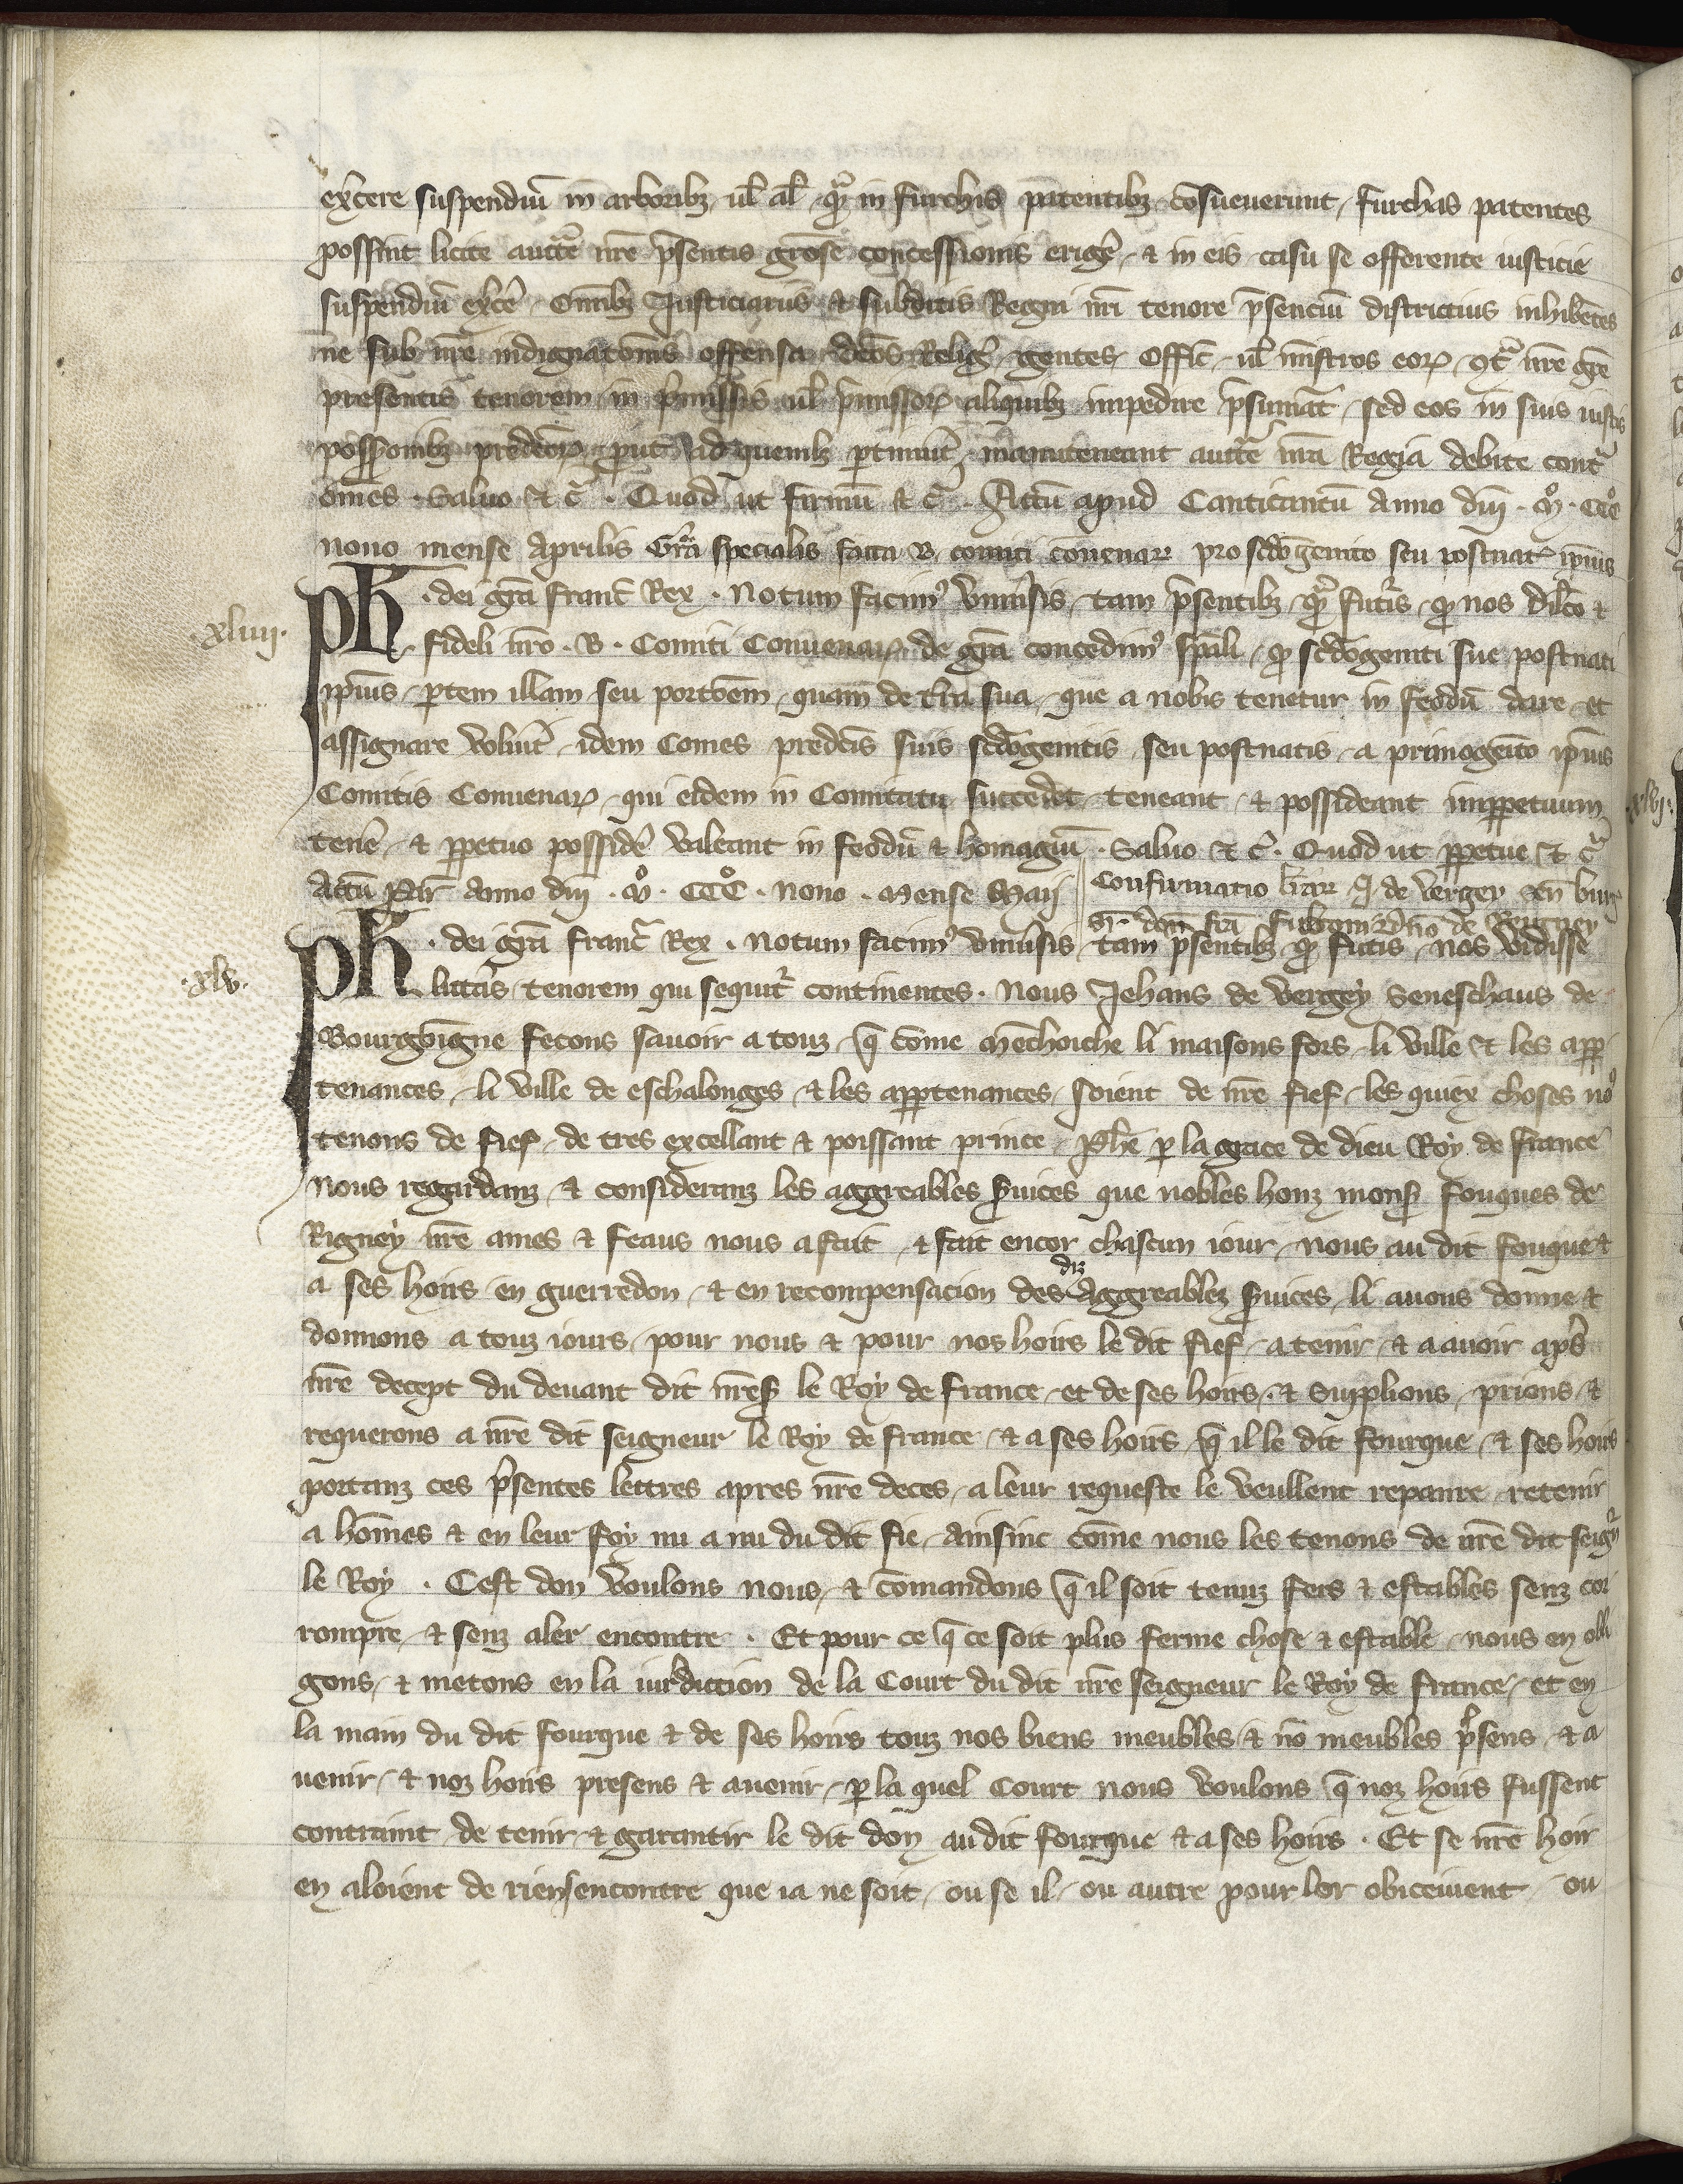 exercere suspendiū in arboribȝ ul̄ al̄ quā in furchis patentibȝ cōsueuerunt, furchas patentes
possint licite auctẽ nr̄e p̄sentis grōse concessionis erigẽ, & in eis casu se offerente iusticie
suspendiū excẽ. Om̄ibȝ Iusticiariis & subditis Regni nr̄i tenore p̄senciū districtius inhibētes
ne sub nr̄e indignatōnis offensa dc̄os Relig̃ gentes, offic̃, ul̄ mīstros eorꝝ, 9t̃ nr̄e gr̄e
presentis tenorem in p̄missis ul̄ p̄missorꝝ aliquibȝ impedire p̄sumāt, sed eos in suis iustis
poss̄onibȝ predc̄orꝝ, put ad quemlȝ ptinuit̃, manuteneant auctẽ nr̄a Regia debite cont̃
om̄es. Saluo & c̃. Quod ut firmū & c̃. Actū apud Cantūcantū Anno dn̄i. M̊. CCC̊
nono mense Aprilis Gr̄a specialis facta B. comiti Conuenarꝝ pro sc̄dogenito seu postnat̃ ip̄ius
.xliiij.
Ph̄. dei gr̄a franc̃ Rex. Notum facim9 Uniu̾sis, tam p̄sentibȝ, quā futur̃is, qd̃ nos dil̄co &
fideli nr̄o. B. Comiti Conuenarꝝ, de gr̄a concedim9 sp̄ali, qd̃ sc̄dogeniti sue postnati
ip̄ius, ptem illam seu portōem, quam de t̃ra sua, que a nobis tenetur in feodū dare et
assignare voluit̃, idem Comes predc̄is suis sc̄dogenitis seu postnatis, a primogēito ip̄ius
Comitis Conuenarꝝ, qui eidem in Comitatu succedet, teneant, & possideant imppetuum,
tenẽ, & ppetuo possidẽ valeant in feodū & homagiū. Saluo & c̃. Quod ut ppetue & c̃
Actū Par̃ Anno dn̄i. M̊. CCC̊. nono. Mense Maij
Confirmatio
de Vergey sen̄
.xlv.
Ph̄. dei gr̄a franc̃ Rex. Notum facim9 uniu̾sis, tam p̄sentibȝ, qd̃ fut̃is, nos vidisse
litt̃as, tenorem qui sequit̃ continentes. Nous Jehans de Vergey Seneschaus de
Bourgōigne fecons sauoir a touz, q̄ cōme Mēchoiche li maisons fors, li ville & les app
tenances, li ville de eschalonges, & les appꝑtenances, soient de nr̄e fief, les quiex choses no9
tenons de fief, de tres excellant & poissant prince, Phē p la grace de dieu Roy de france
Nous regardanz, & consideranz les aggreables s̃uices que nobles honz mons̃ fouques de
Rigney nr̄e ames & feaus nous a fait, & fait encor chascun iour, Nous au dit fouque &
a ses hoirs en guerredon, & en recompensacion des diz Aggreablez s̃uices, li auons donne &
donnons a touz iours, pour nous & pour nos hoirs le dit fief, a tenir, & a auoir ap̃s
nr̄e decept du deuant dit nr̄es̃ le Roy de france, et de ses hoirs, & Supplions, prions, &
requerons a nr̄e dit seigneur le Roy de france, & a ses hoirs, q̄ il le dit fourque, & ses hoirs
portanz ces p̄sentes lettres apres nr̄e deces, a leur requeste le veullent repanre, retenir
a hōmes & en leur foy nu a nu du dit fie, ainsinc cōme nous les tenons de nr̄e dit seign̄r
le Roy. Cest don voulons nous, & cōmandons q̄ il soit tenuz fers & estables senz cor
rompre, & senz aler encontre. Et pour ce q̄ ce soit plus ferme chose & estable, nous en obli
gons, & metons en la iurdiction de la Court du dit nr̄e seigneur le Roy de france, et en
la main du dit fourque & de ses hoirs touz nos biens meubles & nō meubles p̃sens, & a
uenir, & noz hoirs presens & auenir, p la quel Court nous voulons q̄ noz hoirs fussent
contraint de tenir & garantir le dit don au dit fourque & a ses hoirs. Et se nr̄e hoir
en aloient de riens encontre que ia ne soit, ou se il, ou autre pour lor obiceuient, ou